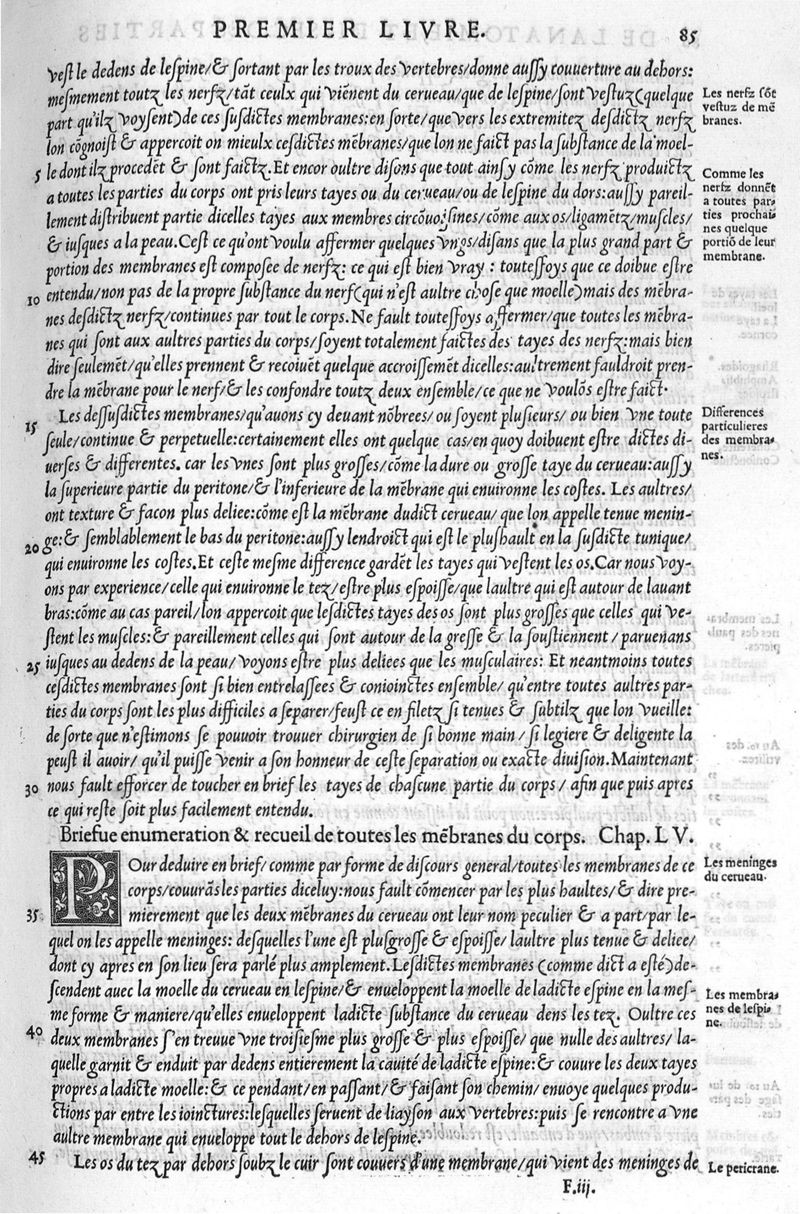 PREMIER LIVRE. 85
veſt le dedens de leſpine/& ſortant par les troux des vertebres/donne auſſy couuerture au dehors:
meſmement toutz les nerfz/tãt ceulx qui viẽnent du cerueau/que de leſpine/ſont veſtuz(quelque
part qu'ilz voyſent)de ces ſuſdictes membranes:en ſorte/que vers les extremitez deſdictz nerfz
lon cõgnoiſt & appercoit on mieulx ceſdictes mẽbranes/que lon ne faict pas la ſubſtance de la moel-
5 le dont ilz procedẽt & ſont faictz. Et encor oultre diſons que tout ainſy cõme les nerfz produictz
a toutes les parties du corps ont pris leurs tayes ou du cerueau/ou de leſpine du dors:auſſy pareil-
lement diſtribuent partie dicelles tayes aux membres circõuoiſines/cõme aux os/ligamẽtz/muſcles/
& iuſques a la peau. Ceſt ce qu'ont voulu affermer quelques vngs/diſans que la plus grand part &
portion des membranes eſt compoſee de nerfz: ce qui eſt bien vray : touteſfoys que ce doibue eſtre
10 entendu/non pas de la propre ſubſtance du nerf(qui n'eſt aultre choſe que moelle)mais des mẽbra-
nes deſdictz nerfz/continues par tout le corps. Ne fault touteſfoys affermer/que toutes les mẽbra-
nes qui ſont aux aultres parties du corps/ſoyent totalement faictes des tayes des nerfz:mais bien
dire ſeulemẽt/qu'elles prennent & recoiuẽt quelque accroiſſemẽt dicelles:aultrement fauldroit pren-
dre la mẽbrane pour le nerf/& les confondre toutz deux enſemble/ce que ne voulõs eſtre faict.
15 Les deſſuſdictes membranes/qu'auons cy deuant nõbrees/ou ſoyent pluſieurs/ou bien vne toute
ſeule/continue & perpetuelle:certainement elles ont quelque cas/en quoy doibuent eſtre dictes di-
uerſes & differentes. car les vnes ſont plus groſſes/cõme la dure ou groſſe taye du cerueau:auſſy
la ſuperieure partie du peritone/& l'inferieure de la mẽbrane qui enuironne les coſtes. Les aultres/
ont texture & facon plus deliee:cõme eſt la mẽbrane dudict cerueau/que lon appelle tenue menin-
20 ge:& ſemblablement le bas du peritone:auſſy lendroict qui eſt le plushault en la ſuſdicte tunique/
qui enuironne les coſtes. Et ceſte meſme difference gardẽt les tayes qui veſtent les os. Car nous voy-
ons par experience/celle qui enuironne le tez/eſtre plus eſpoiſſe/que laultre qui eſt autour de lauant
bras:cõme au cas pareil/lon appercoit que leſdictes tayes des os ſont plus groſſes que celles qui ve-
ſtent les muſcles:& pareillement celles qui ſont autour de la greſſe & la ſouſtiennent/paruenans
25 iuſques au dedens de la peau/voyons eſtre plus deliees que les muſculaires: Et neantmoins toutes
ceſdictes membranes ſont ſi bien entrelaſſees & conioinctes enſemble/qu'entre toutes aultres par-
ties du corps ſont les plus difficiles a ſeparer/feuſt ce en filetz ſi tenues & ſubtilz que lon vueille:
de ſorte que n'eſtimons ſe pouuoir trouuer chirurgien de ſi bonne main/ſi legiere & deligente la
peuſt il auoir/qu'il puiſſe venir a ſon honneur de ceſte ſeparation ou exacte diuiſion. Maintenant
30 nous fault efforcer de toucher en brief les tayes de chaſcune partie du corps/afin que puis apres
ce qui reſte ſoit plus facilement entendu.
Briefue enumeration & recueil de toutes les mẽbranes du corps. Chap. L V.
POur deduire en brief/comme par forme de diſcours general/toutes les membranes de ce
corps/couurãs les parties diceluy:nous fault cõmencer par les plus haultes/& dire pre-
35 mierement que les deux mẽbranes du cerueau ont leur nom peculier & a part/par le-
quel on les appelle meninges: deſquelles l'une eſt plusgroſſe & eſpoiſſe/laultre plus tenue & delice/
dont cy apres en ſon lieu ſera parlé plus amplement. Leſdictes membranes (comme dict a eſté)de-
ſcendent auec la moelle du cerueau en leſpine/& enueloppent la moelle de ladicte eſpine en la meſ-
me forme & maniere/qu'elles enueloppent ladicte ſubſtance du cerueau dens les tez. Oultre ces
40 deux membranes ſ'en treuue vne troiſieſme plus groſſe & plus eſpoiſſe/que nulle des aultres/la-
quelle garnit & enduit par dedens entierement la cauité de ladicte eſpine:& couure les deux tayes
propres a ladicte moelle:& ce pendant/en paſſant/& faiſant ſon chemin/enuoye quelques produ-
ctions par entre les ioinctures:leſquelles ſeruent de liayſon aux vertebres:puis ſe rencontre a vne
aultre membrane qui enueloppe tout le dehors de leſpine.
45 Les os du tez par dehors ſoubz le cuir ſont couuers d'une membrane/qui vient des meninges de
F.iij.
Les nerfz sõt
vestuz de mẽ
branes.
Comme les
nerfz donnẽt
a toutes par
ties prochai
nes quelque
portiõ de leur
membrane.
Differences
particulieres
des membra
nes.
Les meninges
du cerueau.
Les membra
nes de lespi
ne.
Le pericrane.